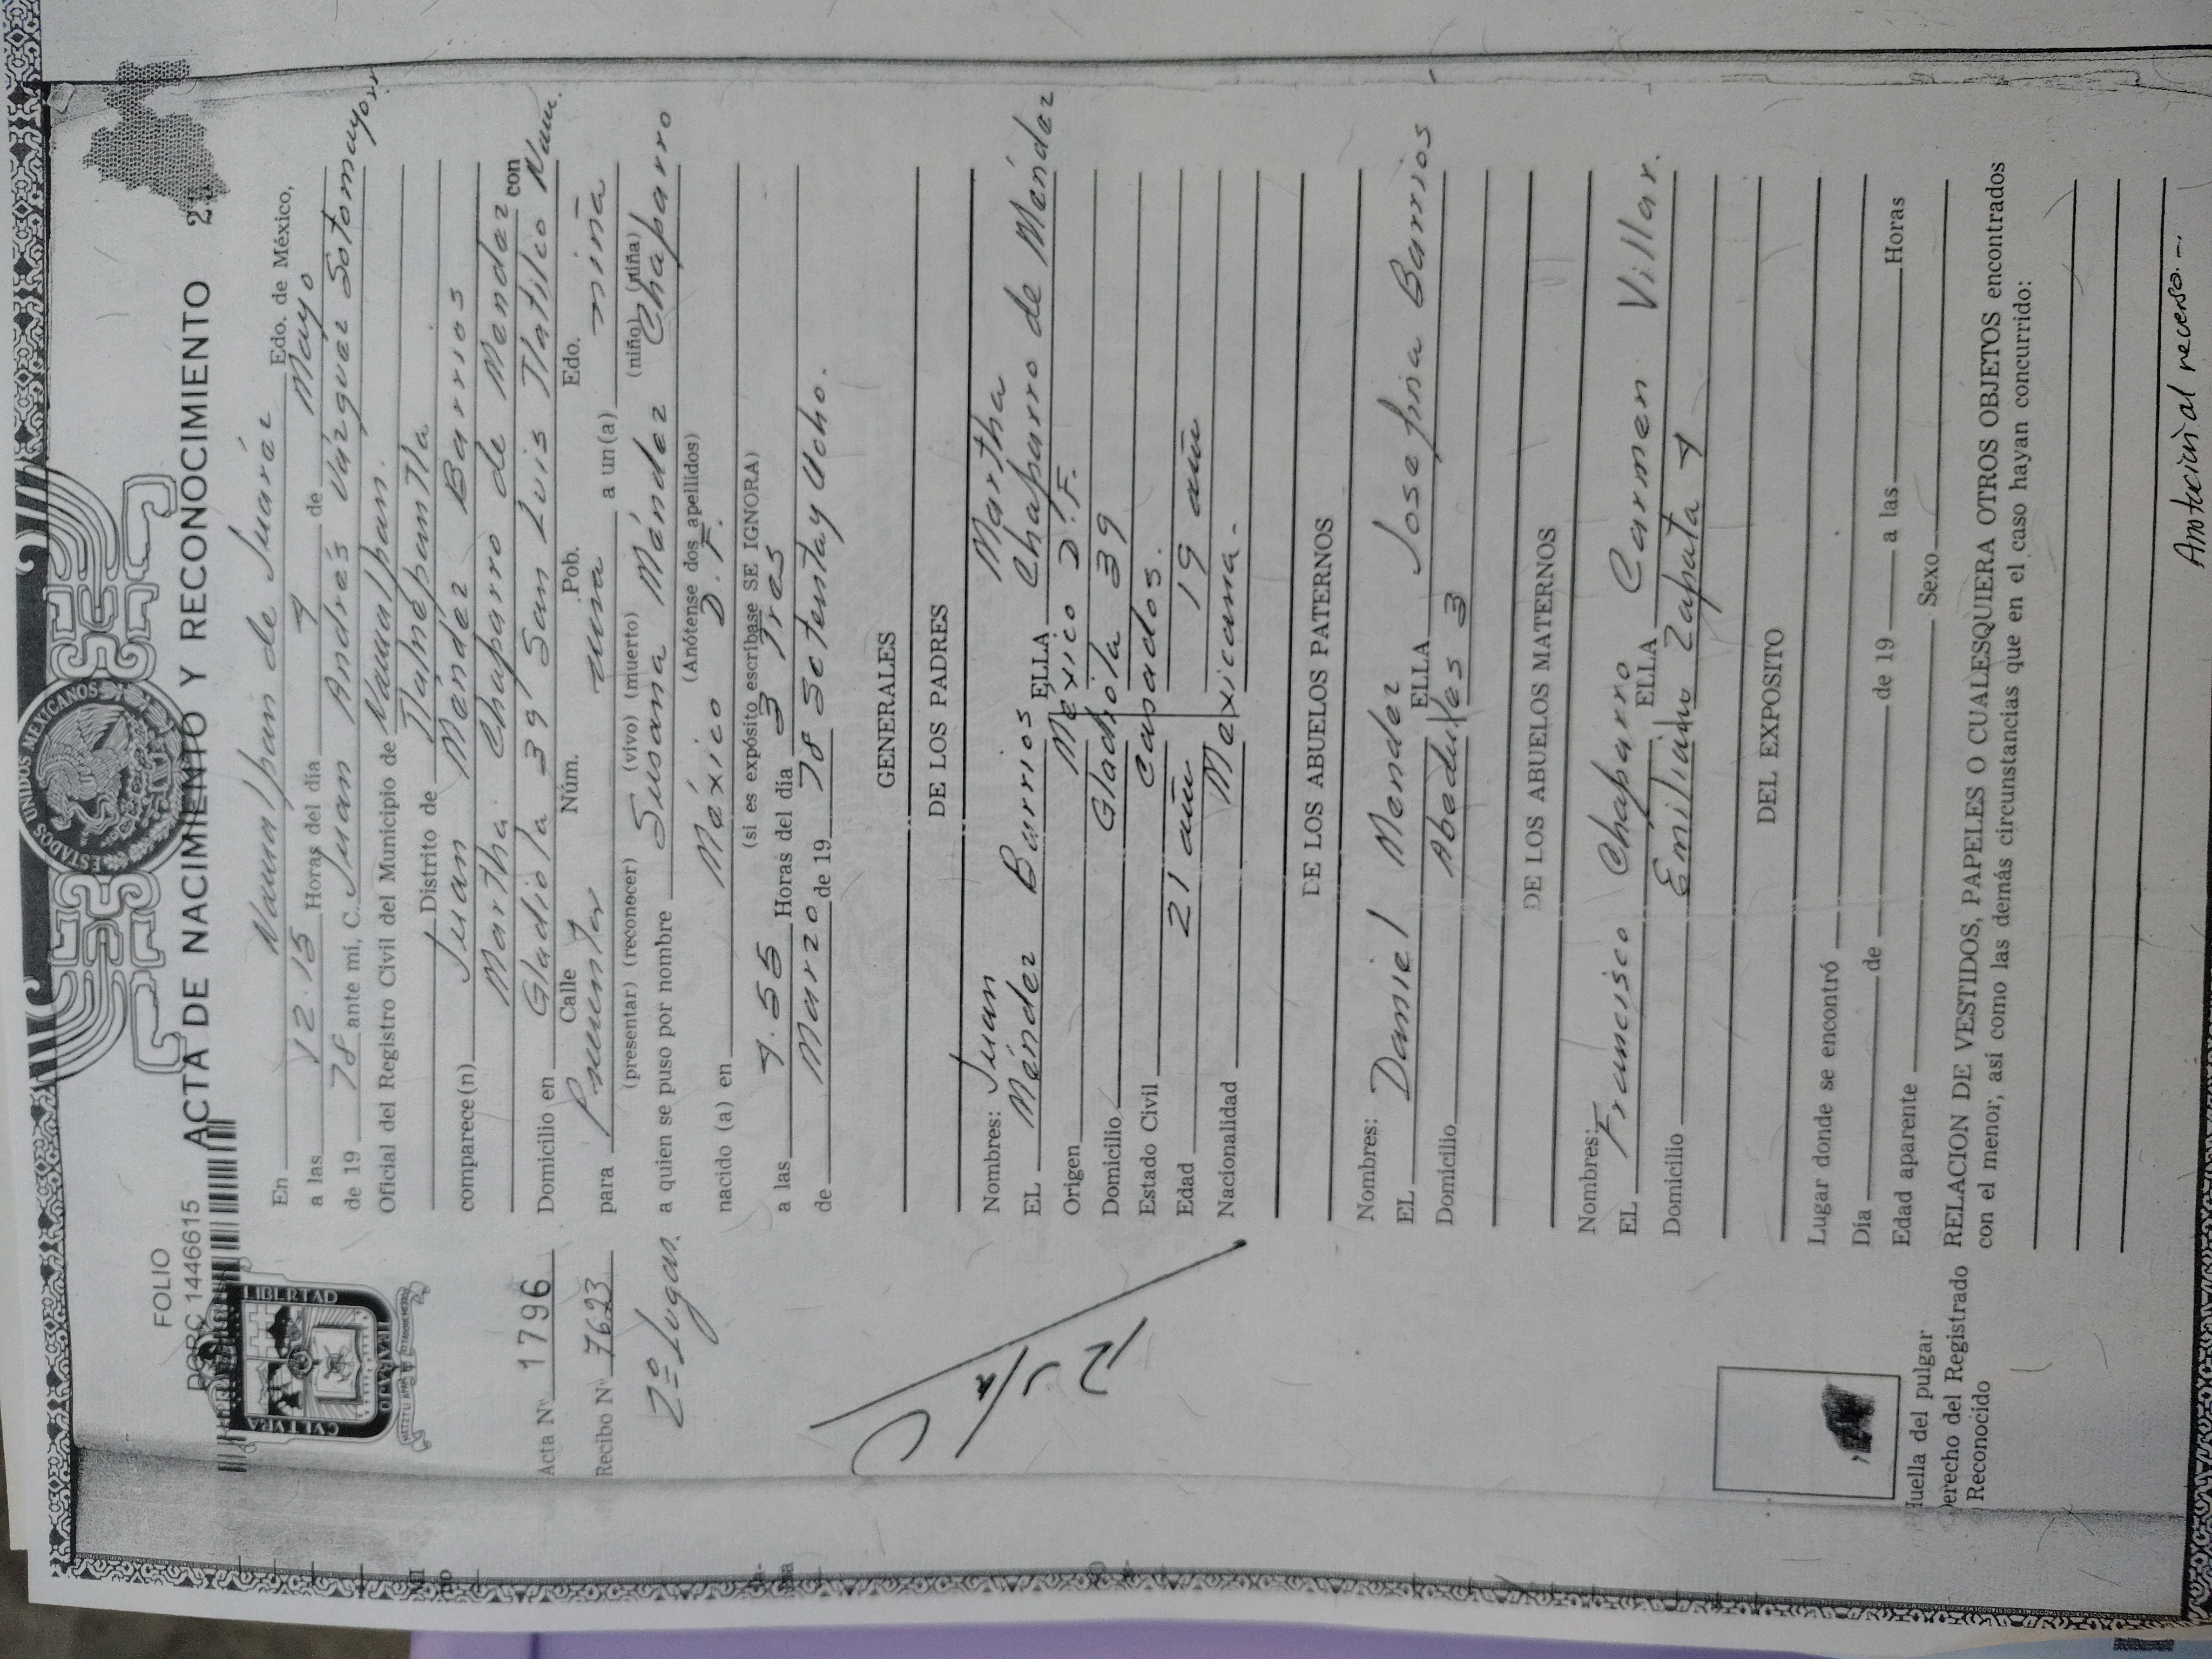 FOLIO
DGRC 1446615
ESTADOS UNIDOS MEXICANOS
ACTA DE NACIMIENTO Y RECONOCIMIENTO 2
CVLTVRA LIBERTAD TRABAJO
En Naucalpan de Juárez Edo. de México,
a las 12.15 Horas del día 4 de Mayo
de 19 78 ante mí, C. Juan Andrés Vázquez Sotomayor
Oficial del Registro Civil del Municipio de Naucalpan.
Distrito de Tlalnepantla
comparece(n) Juan Méndez Barrios
Martha Chaparro de Mendez con
Domicilio en Gladiola 39 San Luis Tlatilco Nau.
Calle Núm. Pob. Edo.
para Presentar una a un(a) niña
(presentar) (reconocer) (vivo) (muerto) (niño) (niña)
a quien se puso por nombre Susana Méndez Chaparro
(Anótense dos apellidos)
nacido (a) en México D.F.
(si es expósito escribase SE IGNORA)
a las 4.55 Horas del día 3 Tres
de Marzo de 19 78 Setenta y Ocho.
Acta Nº 1796
Recibo Nº 7623
2º Lugar.
GENERALES
DE LOS PADRES
Nombres: Juan Martha
EL Méndez Barrios ELLA Chaparro de Méndez
Origen México D.F.
Domicilio Gladiola 39
Estado Civil Casados.
Edad 21 años 19 años
Nacionalidad Mexicana.
DE LOS ABUELOS PATERNOS
Nombres:
EL Daniel Mendez ELLA Josefina Barrios
Domicilio Abedules 3
DE LOS ABUELOS MATERNOS
Nombres:
EL Francisco Chaparro ELLA Carmen Villar.
Domicilio Emiliano Zapata 4
DEL EXPOSITO
Lugar donde se encontró
Día de de 19 a las Horas
Edad aparente Sexo
RELACION DE VESTIDOS, PAPELES O CUALESQUIERA OTROS OBJETOS encontrados
con el menor, así como las demás circunstancias que en el caso hayan concurrido:
Huella del pulgar
Derecho del Registrado
Reconocido
al reverso.-